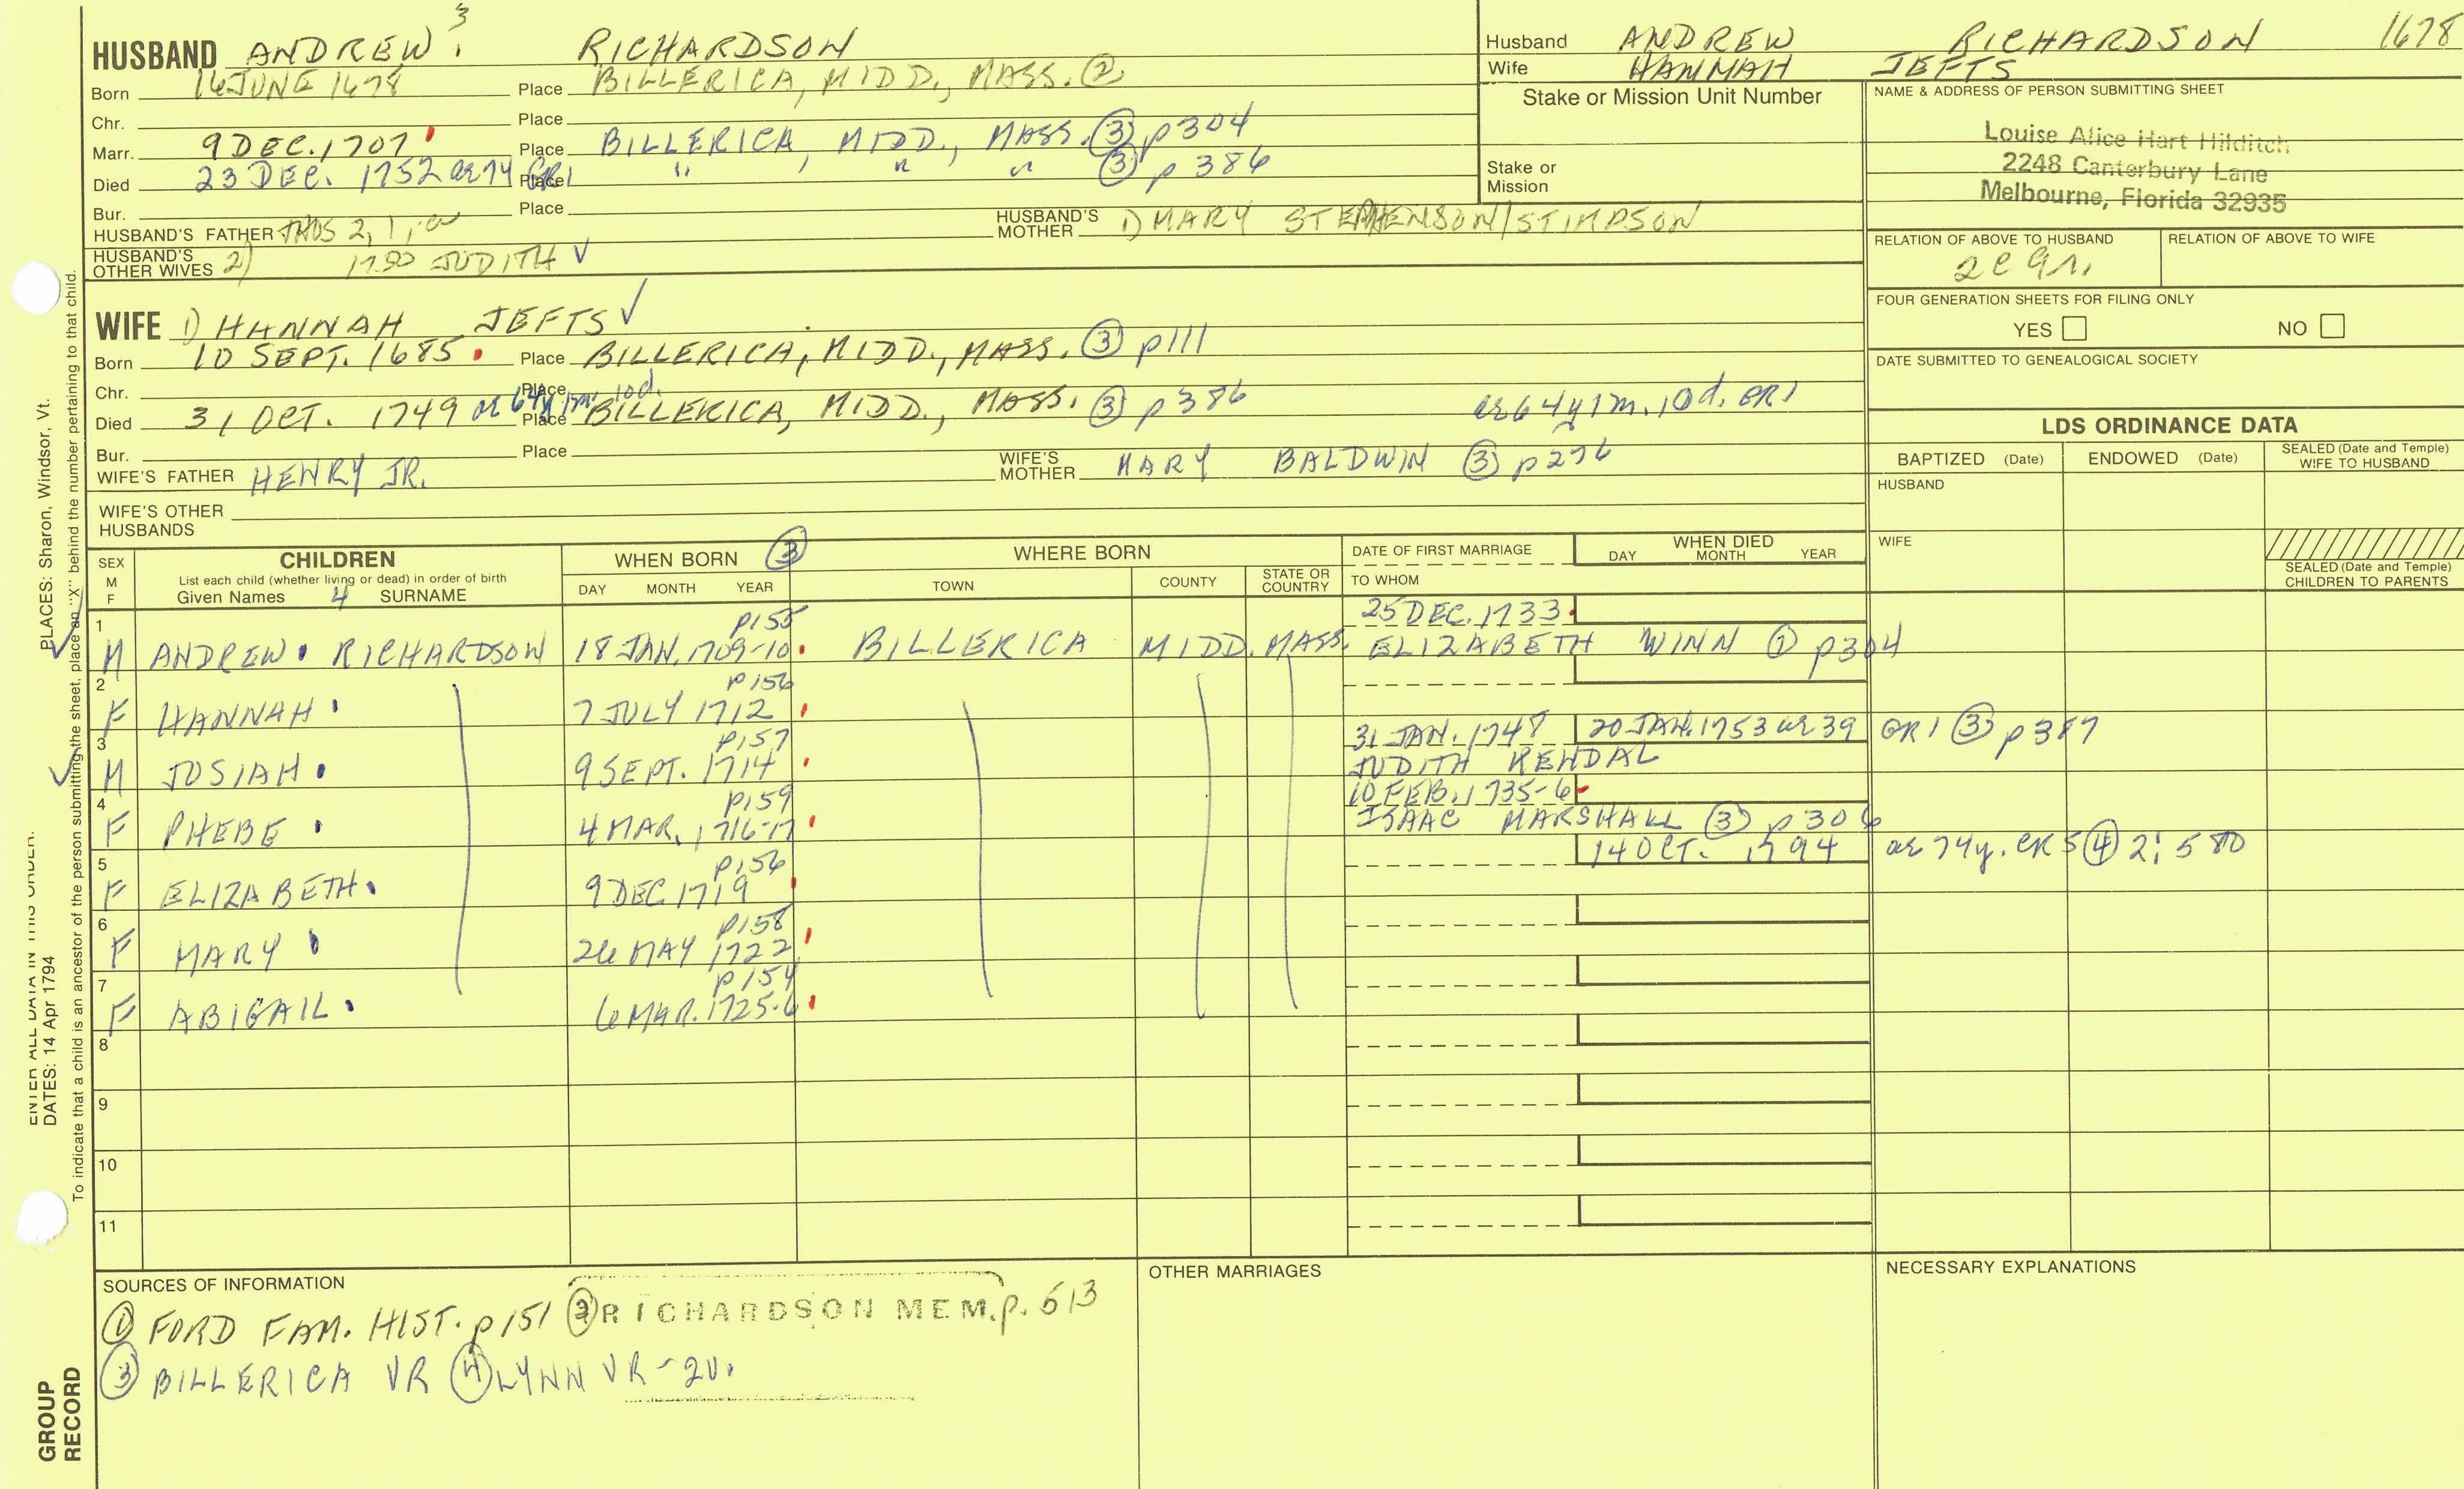 HUSBAND ANDREW 3 RICHARDSON
Born 16 JUNE 1678 Place BILLERICA, MIDD., MASS. ②
Chr. Place
Marr. 9 DEC. 1707 Place BILLERICA, MIDD., MASS. ③ p304
Died 23 DEC. 1752 ae 74 GR1 Place " , " " ③ p 386
Bur. Place
HUSBAND'S FATHER THOS 2, 1 HUSBAND'S MOTHER 1) MARY STEPHENSON/STIMPSON
HUSBAND'S OTHER WIVES 2) 1750 JUDITH ✓
Husband ANDREW RICHARDSON 1678
Wife HANNAH JEFTS
Stake or Mission Unit Number
Stake or Mission
NAME & ADDRESS OF PERSON SUBMITTING SHEET
Louise Alice Hart Hilditch
2248 Canterbury Lane
Melbourne, Florida 32935
RELATION OF ABOVE TO HUSBAND RELATION OF ABOVE TO WIFE
FOUR GENERATION SHEETS FOR FILING ONLY
YES NO
DATE SUBMITTED TO GENEALOGICAL SOCIETY
LDS ORDINANCE DATA
BAPTIZED (Date) ENDOWED (Date) SEALED (Date and Temple) WIFE TO HUSBAND
HUSBAND
WIFE
SEALED (Date and Temple) CHILDREN TO PARENTS
WIFE 1) HANNAH JEFTS ✓
Born 10 SEPT. 1685 Place BILLERICA, MIDD., MASS. ③ p111
Chr. Place
Died 31 OCT. 1749 ae 64y 1m. 10d. Place BILLERICA, MIDD., MASS. ③ p 386 ae 64y 1m. 10d. GR1
Bur. Place
WIFE'S FATHER HENRY JR. WIFE'S MOTHER MARY BALDWIN ③ p276
WIFE'S OTHER HUSBANDS
SEX M F CHILDREN WHEN BORN ③ WHERE BORN DATE OF FIRST MARRIAGE WHEN DIED
List each child (whether living or dead) in order of birth
Given Names 4 SURNAME DAY MONTH YEAR TOWN COUNTY STATE OR COUNTRY TO WHOM DAY MONTH YEAR
1 p155 25 DEC. 1733
M ANDREW RICHARDSON 18 JAN. 1709-10 BILLERICA MIDD. MASS. ELIZABETH WINN ① p304
2 p156
F HANNAH 7 JULY 1712
3 p157 31 JAN. 1748 20 JAN. 1753 ae 39 GR1 ③ p387
M JOSIAH 9 SEPT. 1714 JUDITH KENDAL
4 p159 10 FEB. 1735-6
F PHEBE 4 MAR. 1716-17 ISAAC MARSHALL ③ p306
5 p156 14 OCT. 1794 ae 74y. CR5 ④ 2:580
F ELIZABETH 9 DEC 1719
6 p158
F MARY 26 MAY 1722
7 p154
F ABIGAIL 6 MAR. 1725-6
8
9
10
11
SOURCES OF INFORMATION
① FORD FAM. HIST. p151 ② RICHARDSON MEM. p. 513
③ BILLERICA VR ④ LYNN VR - 2V.
OTHER MARRIAGES
NECESSARY EXPLANATIONS
PLACES: Sharon, Windsor, Vt.
To indicate that a child is an ancestor of the person submitting the sheet, place an "X" behind the number pertaining to that child.
ENTER ALL DATA IN THIS ORDER:
DATES: 14 Apr 1794
GROUP RECORD